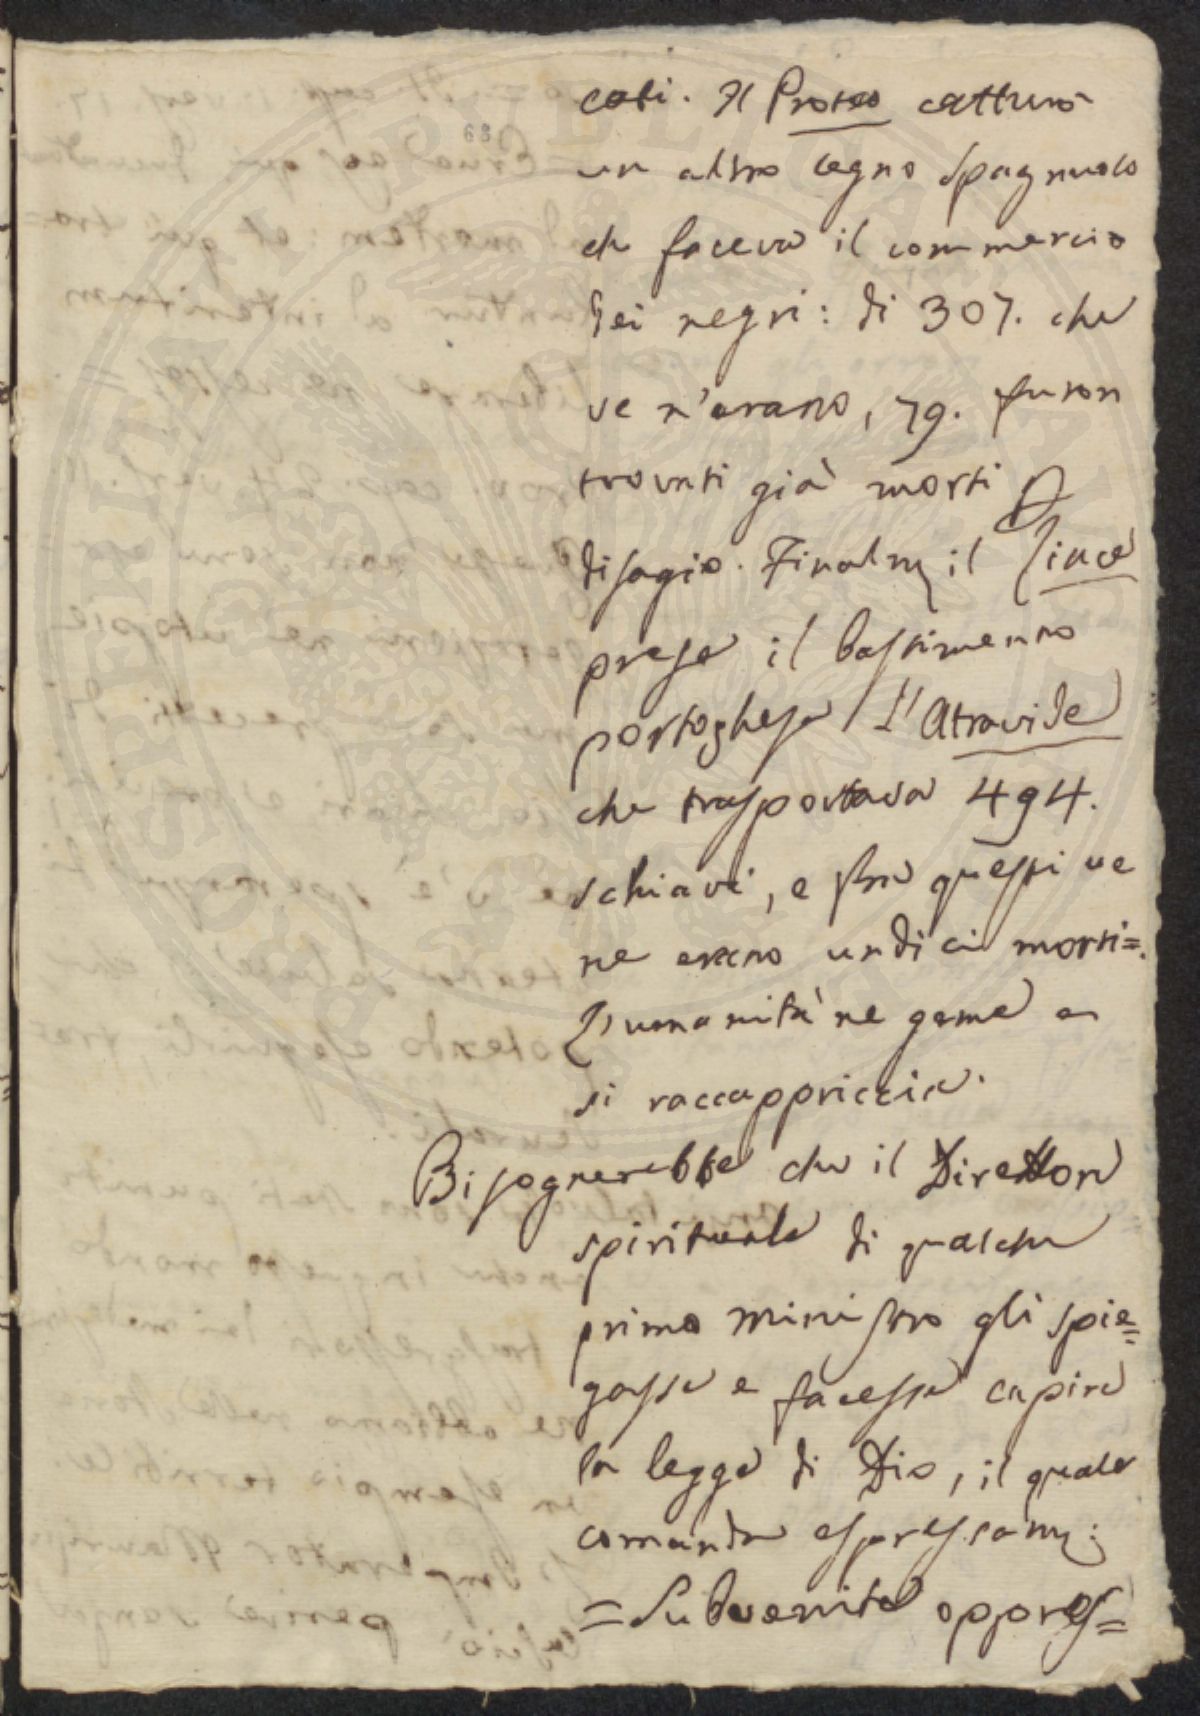 cati. Il Proteo catturò
un altro legno Spagnuolo
che faceva il commercio
dei negri: di 307. che
ve n'erano, 79. furon
trovati già morti di
disagio. Finalm. il
prese il bastimento
portoghese l'Atravide
che trasportava 494.
schiavi, e fra questi ve
ne erano undici morti=.
L'umanità ne geme e
si raccappriccia.
Bisognerebbe che il Direttore
spirituale di qualche
primo ministro gli spie=
gasse e facesse capire
la legge di Dio, il quale
comanda espressam:
= Subvenite oppres=
68